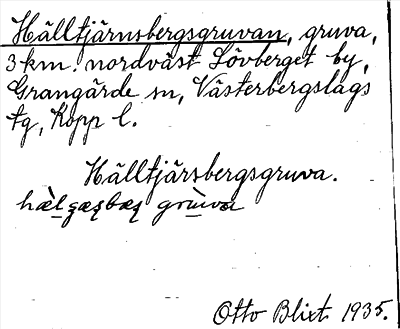 Hälltjärnsbergsgruvan, gruva,
3 km. nordväst Lövberget by,
Grangärde sn, Västerbergslags
tg, Kopp l.
Hälltjärsbergsgruva.
Otto Blixt 1935.